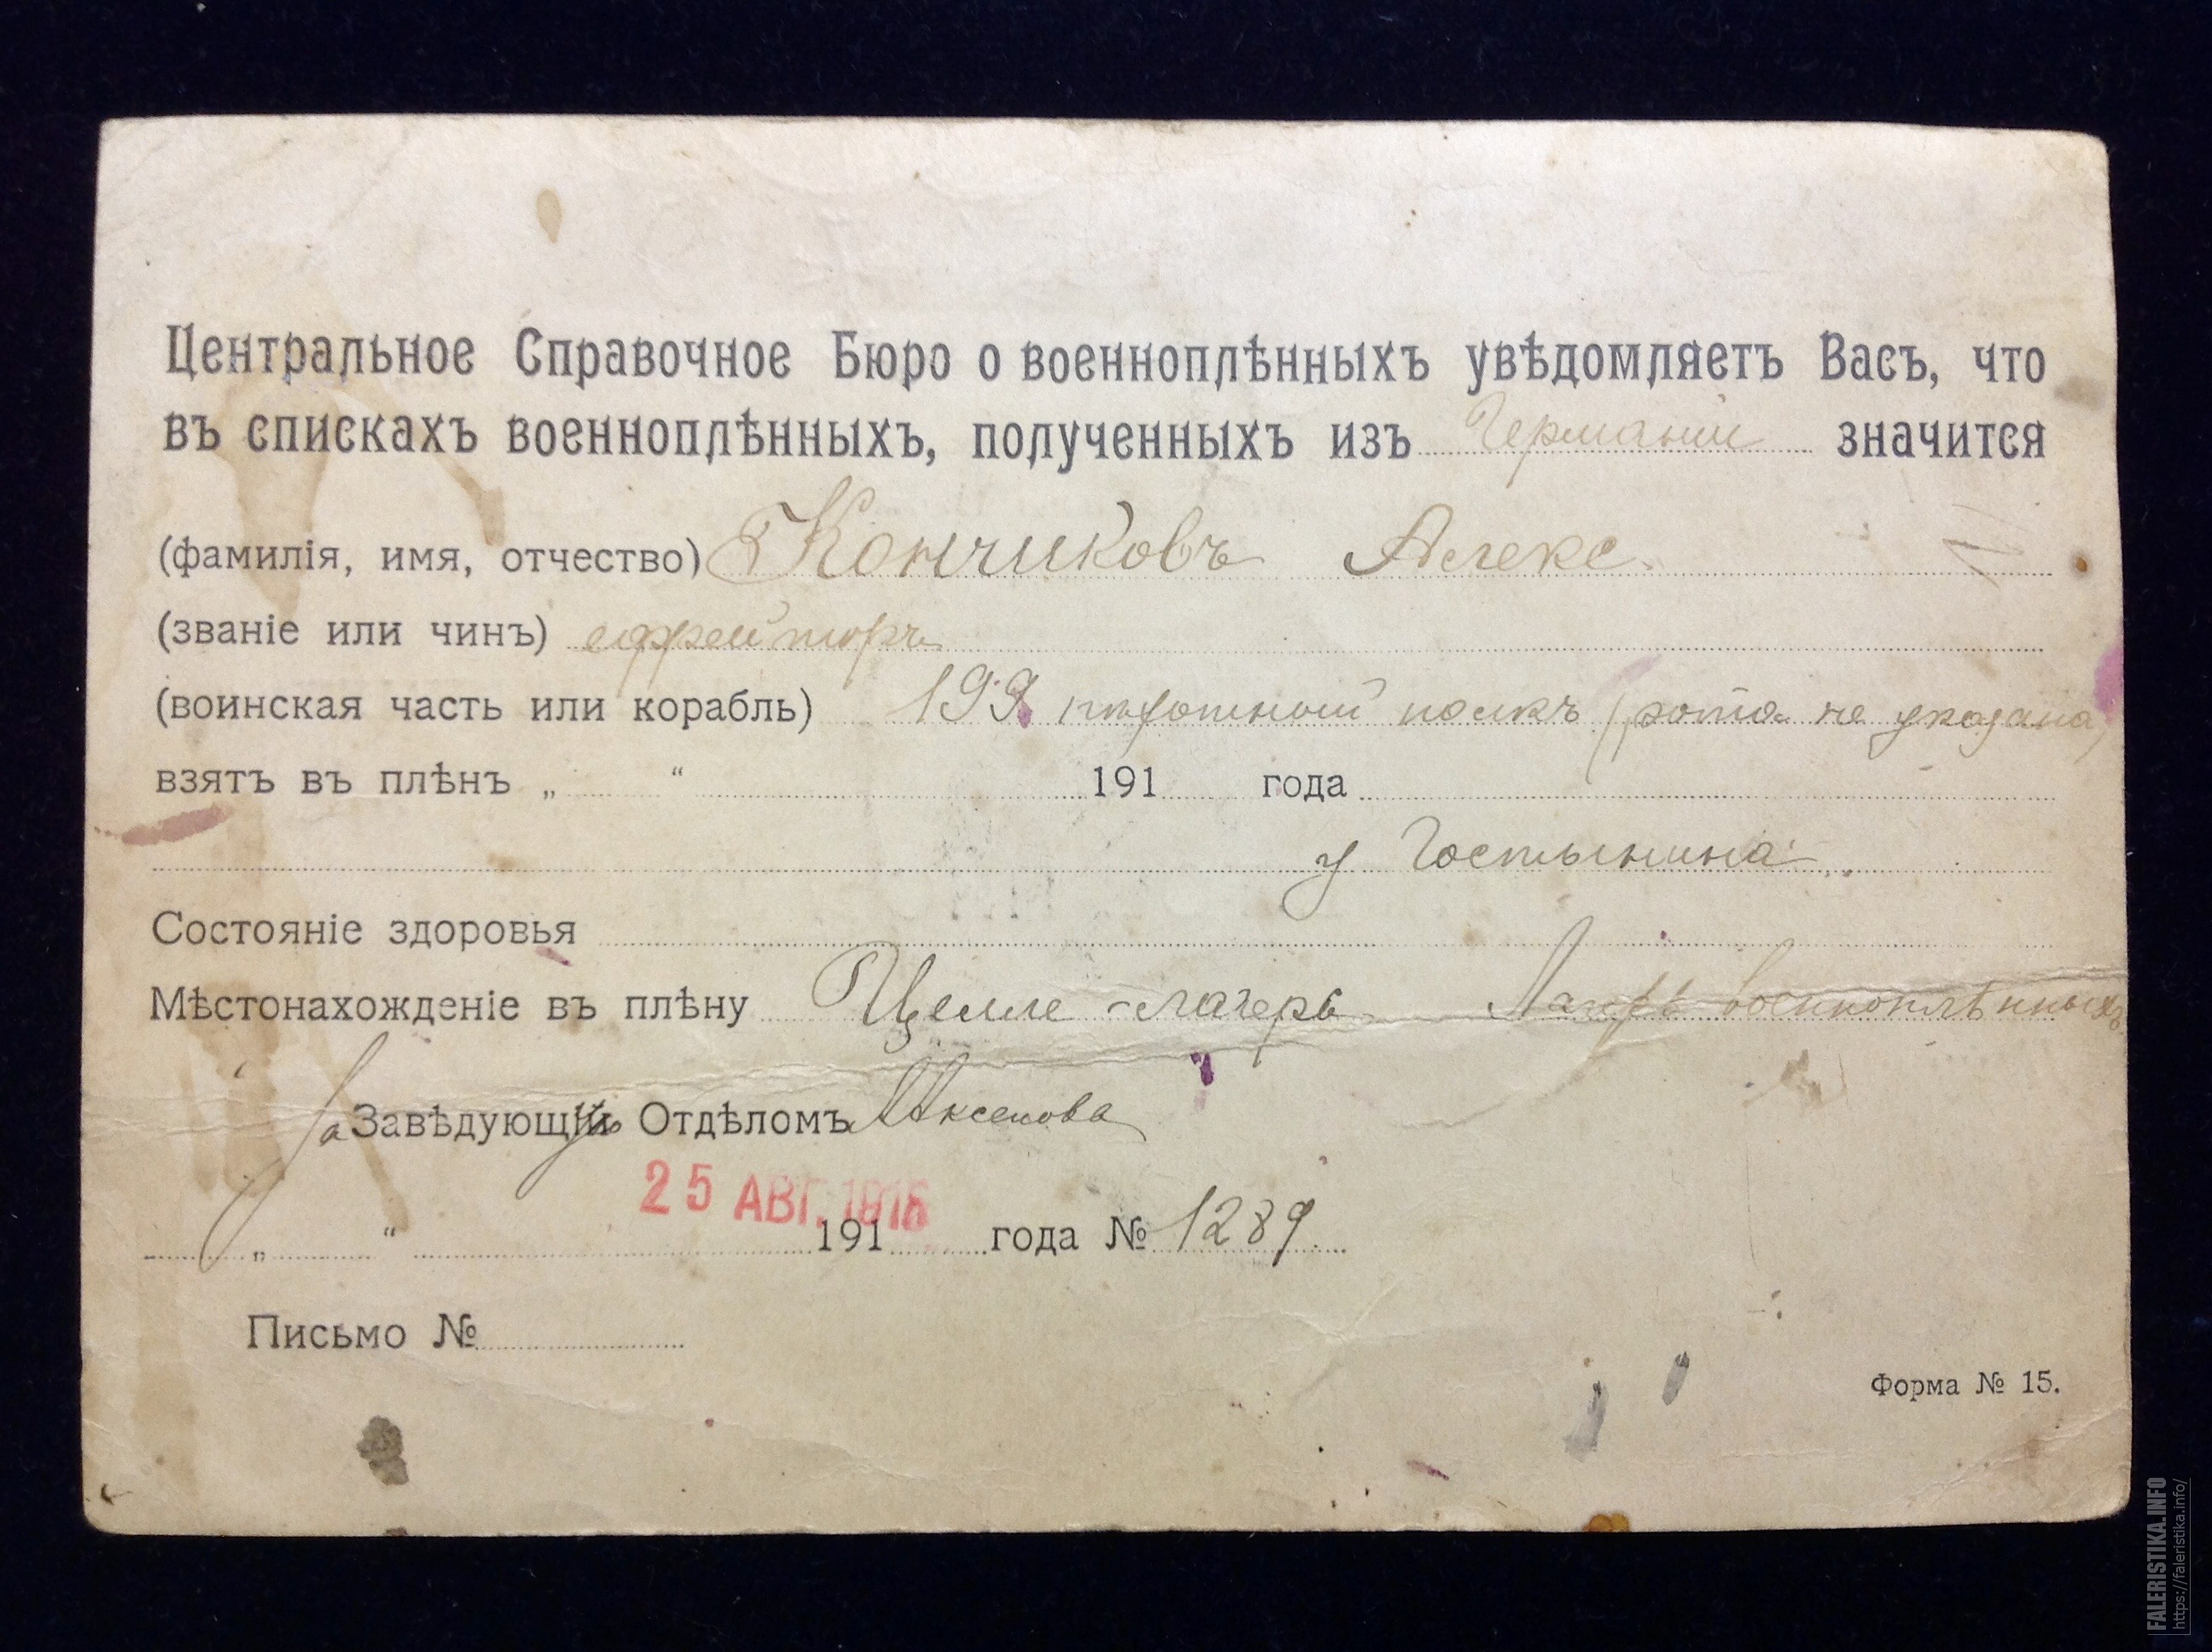 Центральное Справочное Бюро о военноплѣнныхъ увѣдомляетъ Васъ, что
въ спискахъ военноплѣнныхъ, полученныхъ изъ Германіи значится
(фамилія, имя, отчество) Кончиковъ Алекс.
(званіе или чинъ) ефрейторъ
(воинская часть или корабль) 199 пѣхотный полкъ (рота не указана)
взятъ въ плѣнъ „ “ 191 года
у Гостынина
Состояніе здоровья
Мѣстонахожденіе въ плѣну Целле-лагерь Лагерь военноплѣнныхъ
За Завѣдующій Отдѣломъ Аксенова
25 АВГ. 191
„ “ 191 года № 1289
Письмо №
Форма № 15.
FALERISTIKA.INFO
https://faleristika.info/